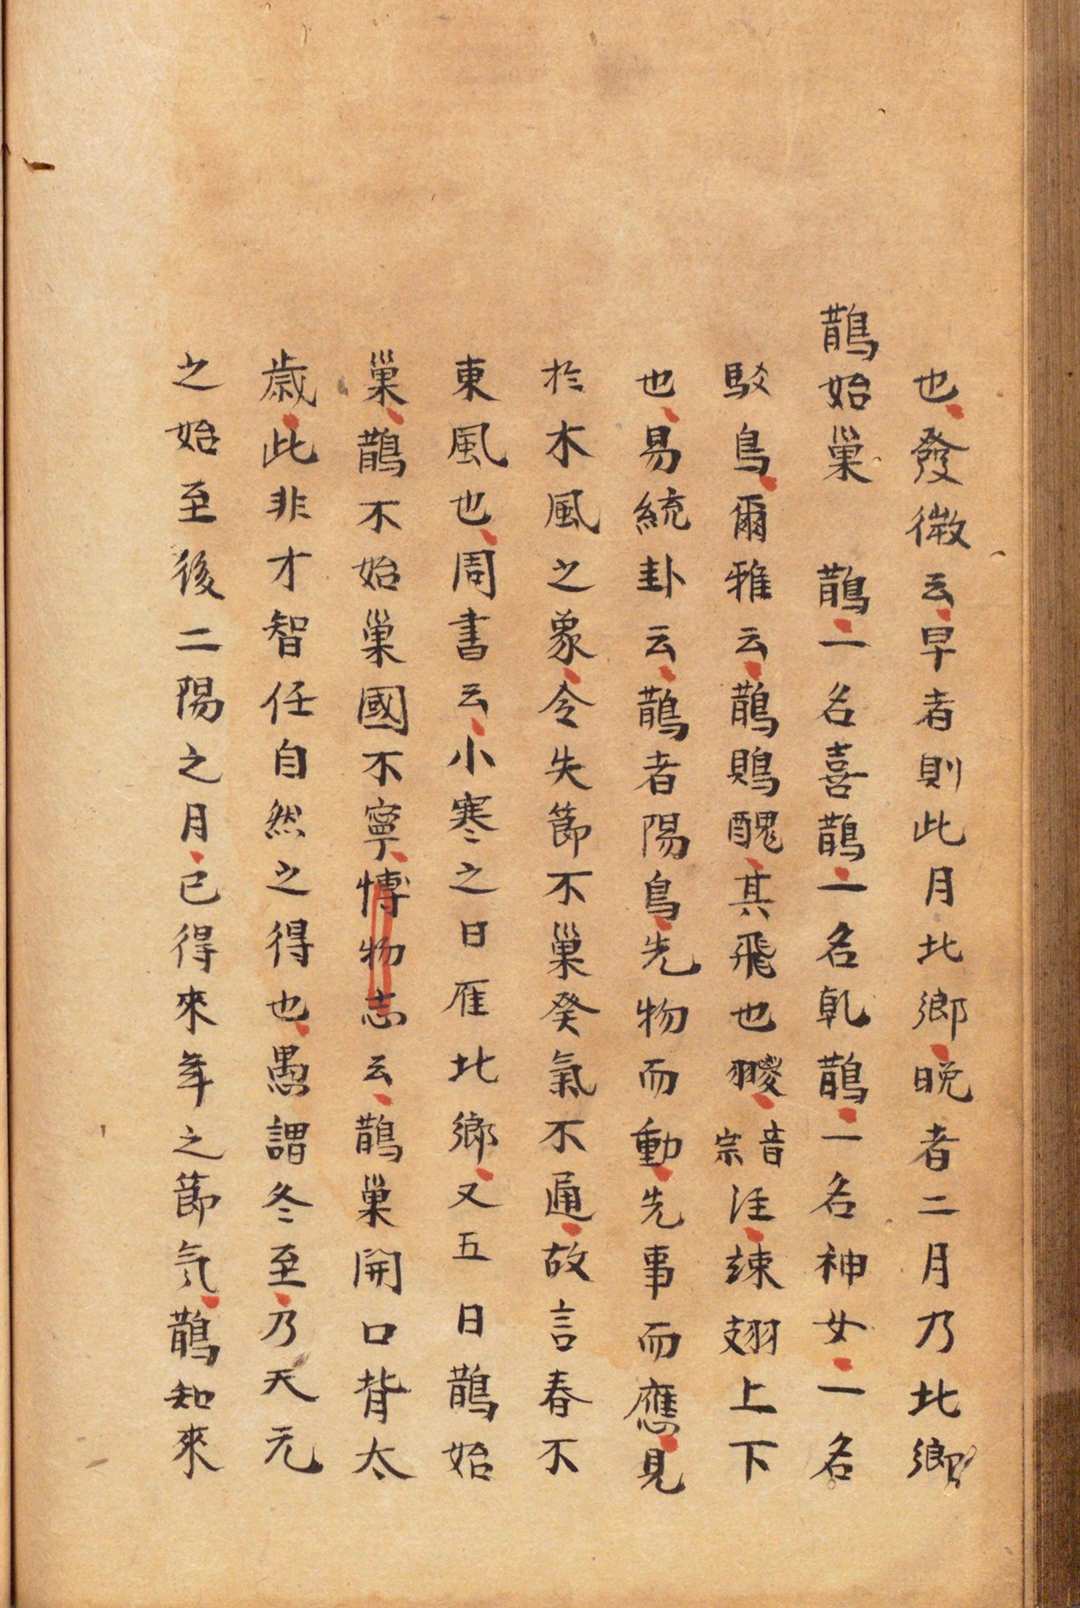 也發微云早者則此月北鄉晚者二月乃北鄉
鵲始巢　鵲一名喜鵲一名乹鵲一名神女一名
駁鳥爾雅云鵲鵙醜其飛也翪音宗注竦翅上下
也易統卦云鵲者陽鳥先物而動先事而應見
於木風之象令失節不巢癸氣不通故言春不
東風也周書云小寒之日雁北鄉又五日鵲始
巢鵲不始巢國不寧博物志云鵲巢開口背太
歲此非才智任自然之得也愚謂冬至乃天元
之始至後二陽之月已得來年之節气鵲知來